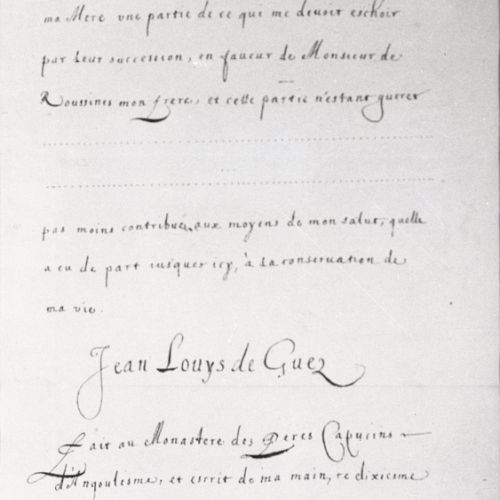 ma Mere une partie de ce que me devoit eschoir
par leur succession, en faveur de Monsieur de
Roussines mon frere, et cette partie n'estant gueres
pas moins contribué aux moyens de mon salut, quelle
a eu de part iusquer icy, à la conservation de
ma vie.
Jean Louys de Guez
Fait au Monastere des Peres Capucins
d'Angoulesme, et escrit de ma main, ce dixiesme